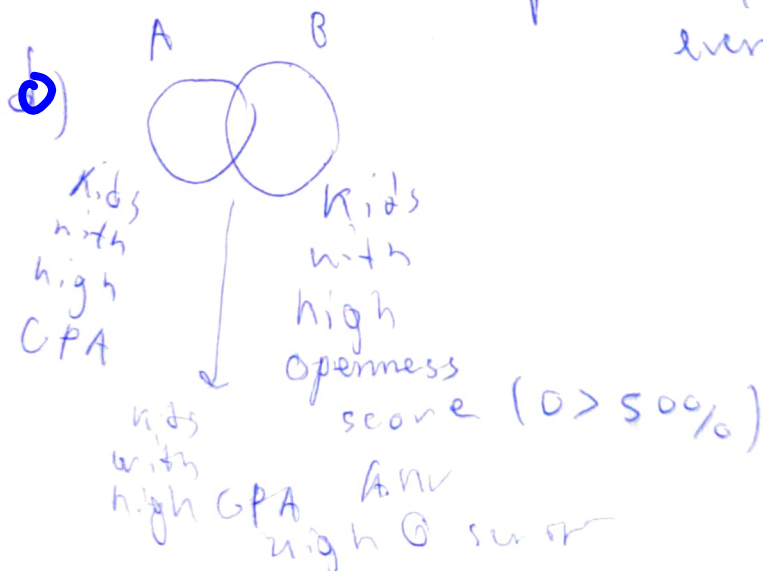 A B
b)
Kids
with
high
GPA
Kids
with
high
openness
score (O > 50%)
kids
with
high GPA And
high O score